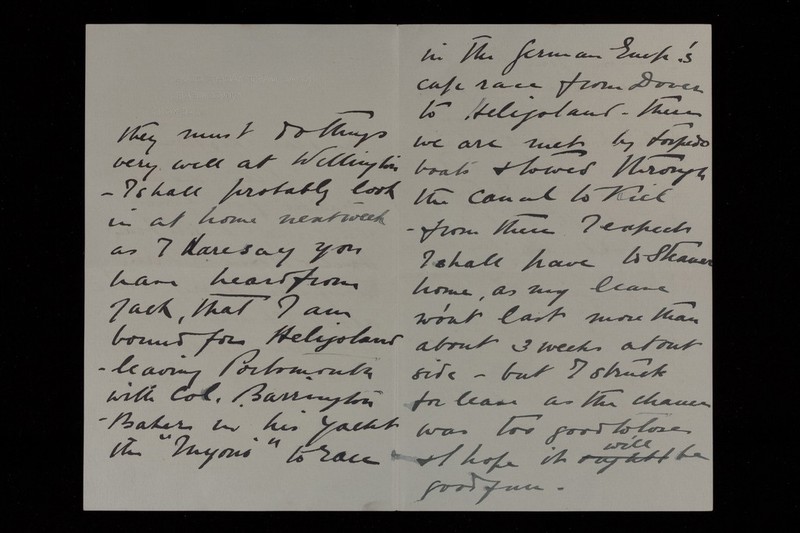 they must do things
very well at Wellington
- I shall probably look
in at home next week
as I daresay you
have heard from
Jack, that I am
bound for Heligoland
- leaving Portsmouth
with Col. Barrington
- Baker in his yacht
the " " to race
in the German Emp.'s
cup race from Dover
to Heligoland - then
we are met by torpedo
boats & towed through
the canal to Kiel
- from there I expect
I shall have to steamer
home, as my leave
wont last more than
about 3 weeks at out
side - but I struck
for leave as the chance
was too good to lose
& I hope it ought to will be
good fun -